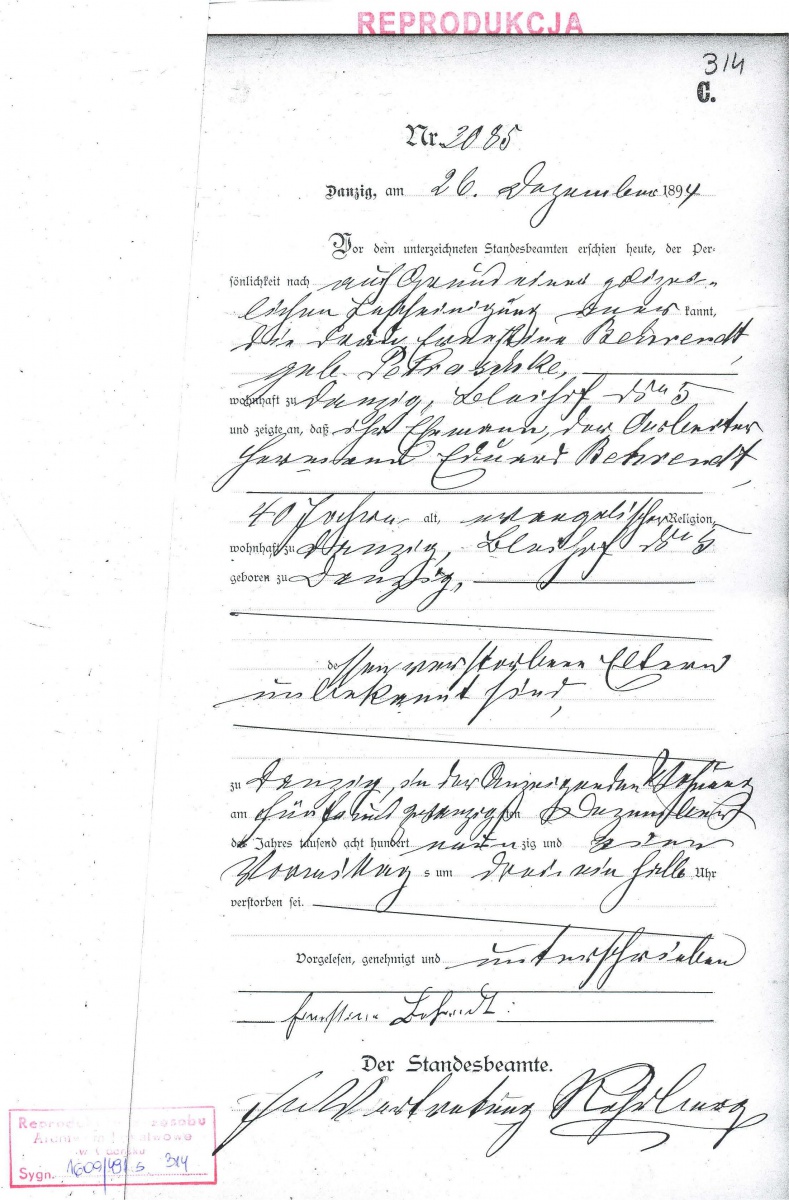 REPRODUKCJA
314
C.
Nr. 2085
Danzig, am 26. Dezember 1894
Vor dem unterzeichneten Standesbeamten erschien heute, der Per-
sönlichkeit nach auf Grund einer polizei-
lichen Bescheinigung anerkannt,
die Frau Ernestine Behrendt,
geb. Petraschke,
wohnhaft zu Danzig, Bleihof No 5
und zeigte an, daß ihr Ehemann, der Arbeiter
Hermann Eduard Behrendt,
40 Jahre alt, evangelischer Religion,
wohnhaft zu Danzig, Bleihof No 5
geboren zu Danzig,
dessen verstorbene Eltern
unbekannt sind,
zu Danzig, in der Anzeigenden Wohnung
am fünf und zwanzigsten Dezember
des Jahres tausend acht hundert neunzig und vier
Vormittags um drei ein halb Uhr
verstorben sei.
Vorgelesen, genehmigt und unterschrieben
Ernstine Behrendt
Der Standesbeamte.
In Vertretung
Archiwum
Sygn. 1609/491 s 314